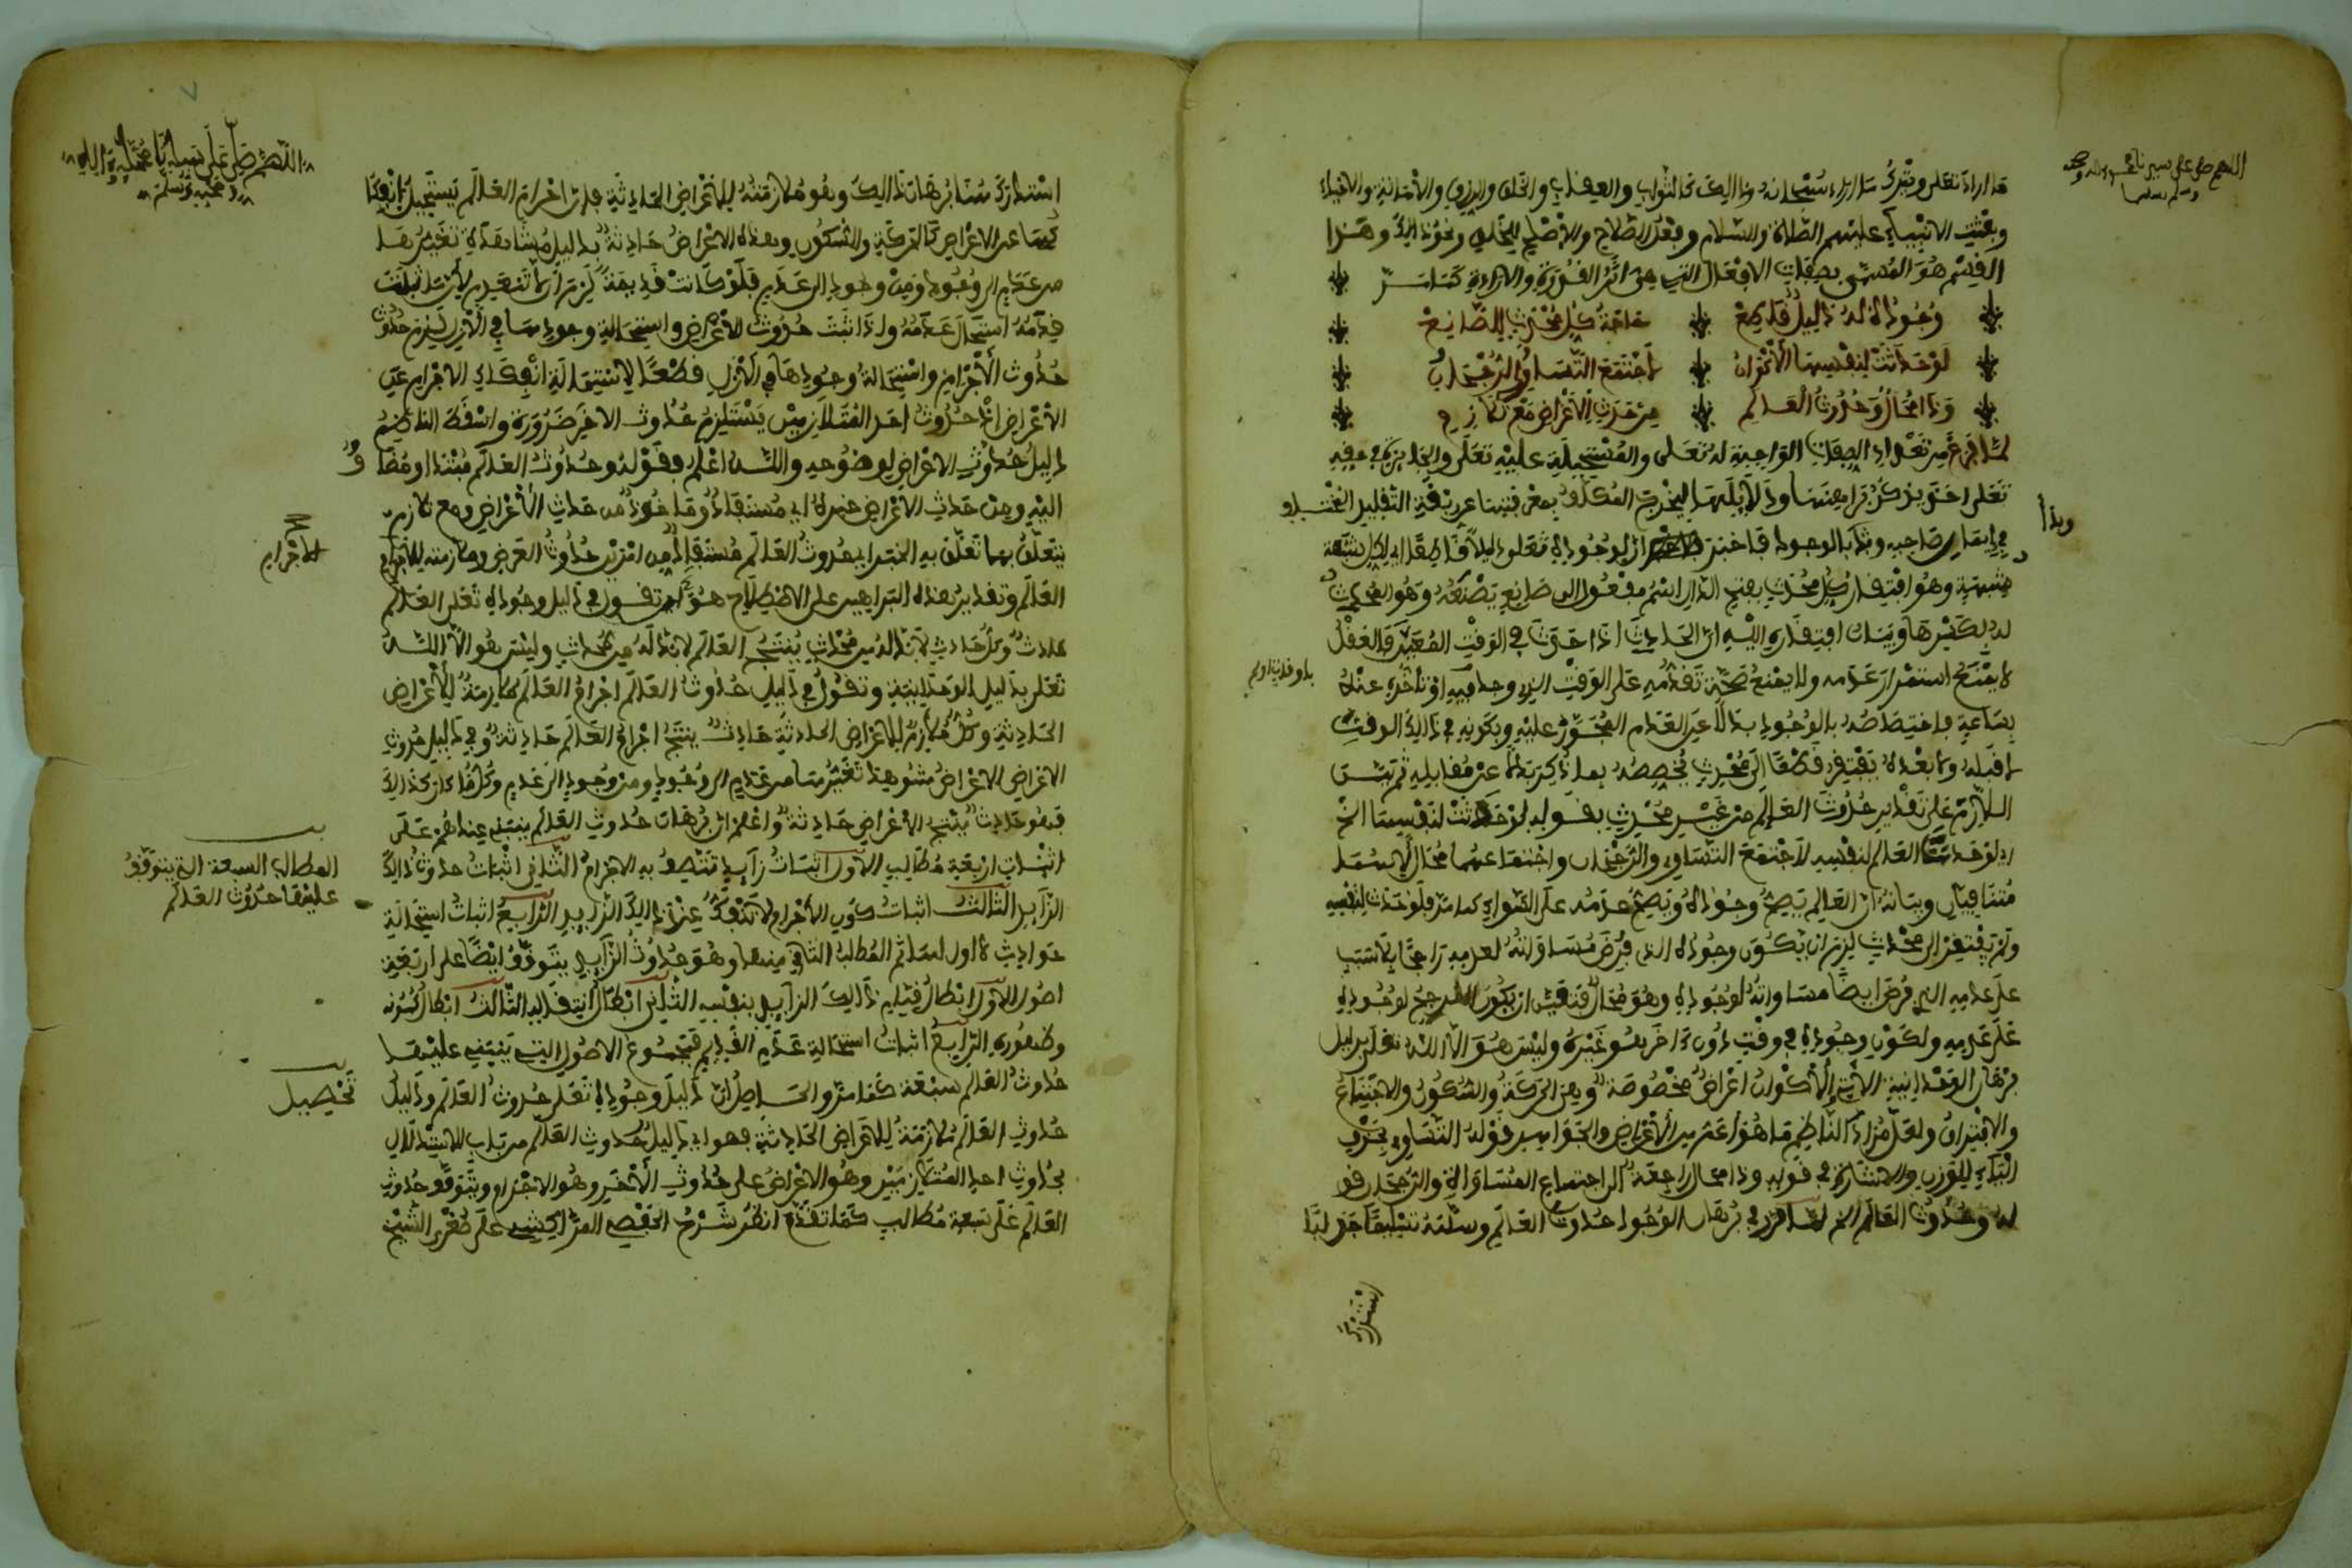 اللهم صل على سيدنا محمد وءاله وصحبه
وسلم تسليما
ما اراد تعلى ويترك ما اراد سبحانه وذالك كالثواب والعقاب والخلق والرزق والاماتة والاحياء
وبعث الانبياء عليهم الصلاة والسلام وفعل الصلاح والاصلح للخلق ونحو ذالك وهذا
القسم هو المسمى بصفات الافعال التي هي اثر القدرة والارادة كما مر
وجوده له دليل قاطع حاجة كل محدث للصانع
لو حدثت لنفسها الاكوان لاجتمع التساوي والرجحان
وذا محال وحدوث العالم من حدث الاعراض مع تلازم
لما فرغ من تعداد الصفات الواجبة له تعلى والمستحيلة عليه تعلى والجائزة في حقه
تعلى اخذ يذكر براهينها ودلائلها ليخرج المكلف بمعرفتها عن ربقة التقليد المختلف
في ايمان صاحبه وبدأ بالوجود فاخبر ان لوجوده تعلى دليلا قاطعا اي لكل شبهة
وهو افتقار كل محدث بفتح الدال اسم مفعول الى صانع يصنعه وهو المحدث
له بكسرها وبيان افتقاره اليه ان الحادث اذا حدث في الوقت المعين فالعقل
لا يمنع استمرار عدمه ولا يمنع صحة تقدمه على الوقت الذي وجد فيه او تاخره عنه
بساعة فاختصاصه بالوجود بدلا عن العدم المجوز عليه وبكونه في ذالك الوقت
لا قبله ولا بعده يفتقر قطعا الى محدث يخصصه بما ذكر بدلا عن مقابله ثم بين
اللازم على تقدير حدوث العالم من غير محدث بقوله لو حدثت لنفسها الخ
اي لو حدث العالم لنفسه لاجتمع التساوي والرجحان واجتماعهما محال لانهما
متنافيان وبيانه ان العالم يصح وجوده ويصح عدمه على السواء كما مر فلو حدث لنفسه
ولم يفتقر الى محدث لزم ان يكون وجوده الذي فرض مساواته لعدمه راجحا بلا سبب
على عدمه الذي فرض ايضا مساواته لوجوده وهو محال فتعين ان يكون المرجح لوجوده
على عدمه ولكون وجوده في وقت دون ءاخر هو غيره وليس هو الا الله تعلى بدليل
برهان الوحدانية الآتي والاكوان اعراض مخصوصة وهي الحركة والسكون والاجتماع
والافتراق ولعل مراد الناظم ما هو اعم من الاعراض والجواهر قوله التساوي بحذف
الياء للوزن والاشارة في قوله وذا محال راجعة الى اجتماع المساواة والرجحان
له وحدوث العالم الخ لما قرر في برهان الوجود حدوث العالم وسلمه تسليما جدليا
وبدأ
استدرك
اللهم صل على سيدنا محمد وءاله
وصحبه وسلم
استدرك هنا برهان ذالك وهو ملازمته للاعراض الحادثة فان اجرام العالم يستحيل انفكا
كها عن الاعراض كالحركة والسكون وهذه الاعراض حادثة بدليل مشاهدة تغيرها
من عدم الى وجود ومن وجود الى عدم فلو كانت قديمة لزم ان لا تنعدم لان ما ثبت
قدمه استحال عدمه واذا ثبت حدوث الاعراض واستحالة وجودها في الازل لزم حدوث
حدوث الاجرام واستحالة وجودها في الازل قطعا لاستحالة انفكاك الاجرام عن
الاعراض اذ حدوث احد المتلازمين يستلزم حدوث الاخر ضرورة واسقط الناظم
دليل حدوث الاعراض لوضوحه والله اعلم وقوله وحدوث العالم مبتدا ومضا
ف
اليه ومن حدث الاعراض خبره اي مستفاد وماخوذ من حدث الاعراض ومع تلازم
يتعلق بما تعلق به الخبر اي حدوث العالم مستفاد من امرين حدوث العرض وملازمته للاجرام
العالم وتقدير هذه البراهين على الاصطلاح هو ان تقول في دليل وجوده تعلى العالم
حادث وكل حادث لا بد له من محدث ينتج العالم لا بد له من محدث وليس هو الا الله
تعلى بدليل الوحدانية وتقول في دليل حدوث العالم اجرام العالم ملازمة للاعراض
الحادثة وكل ملازم للاعراض الحادثة حادث ينتج اجرام العالم حادثة وفي دليل حدوث
الاعراض الاعراض شوهد تغيرها من عدم الى وجود ومن وجود الى عدم وكل ما كان كذالك
فهو حادث ينتج الاعراض حادثة واعلم ان برهان حدوث العالم ينبني عندهم على
اثبات اربعة مطالب الاول اثبات زايد تتصف به الاجرام الثاني اثبات حدوث ذالك
الزايد الثالث اثبات كون الاجرام لا تنفك عن ذالك الزايد الرابع اثبات استحالة
حوادث لا اول لها ثم المطلب الثاني منها وهو حدوث الزايد يتوقف ايضا على اربعة
اصول الاول ابطال قيام ذالك الزايد بنفسه الثاني ابطال انتقاله الثالث ابطال كمونه
وظهوره الرابع اثبات استحالة عدم القديم فمجموع الاصول التي ينبني عليها
حدوث العالم سبعة كما مر والحاصل ان دليل وجوده تعلى حدوث العالم ودليل
حدوث العالم ملازمة للاعراض الحادثة فهو اي دليل حدوث العالم من باب الاستدلال
بحدوث احد المتلازمين وهو الاعراض على حدوث الاخر وهو الاجرام ويتوقف حدوث
العالم على سبعة مطالب كما تقدم انظر شرح الحفصي المراكشي على صغرى الشيخ
الاجرام
المطالب السبعة التي يتوقف
عليها حدوث العالم
تحصيل